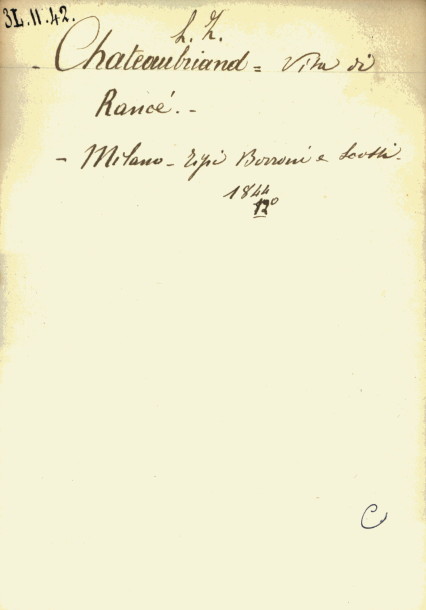 3L.11.42.
L. Z.
- Chateaubriand = Vita di
Rancé. -
- Milano - Tipi Borroni e Scotti -
1844
12º
C